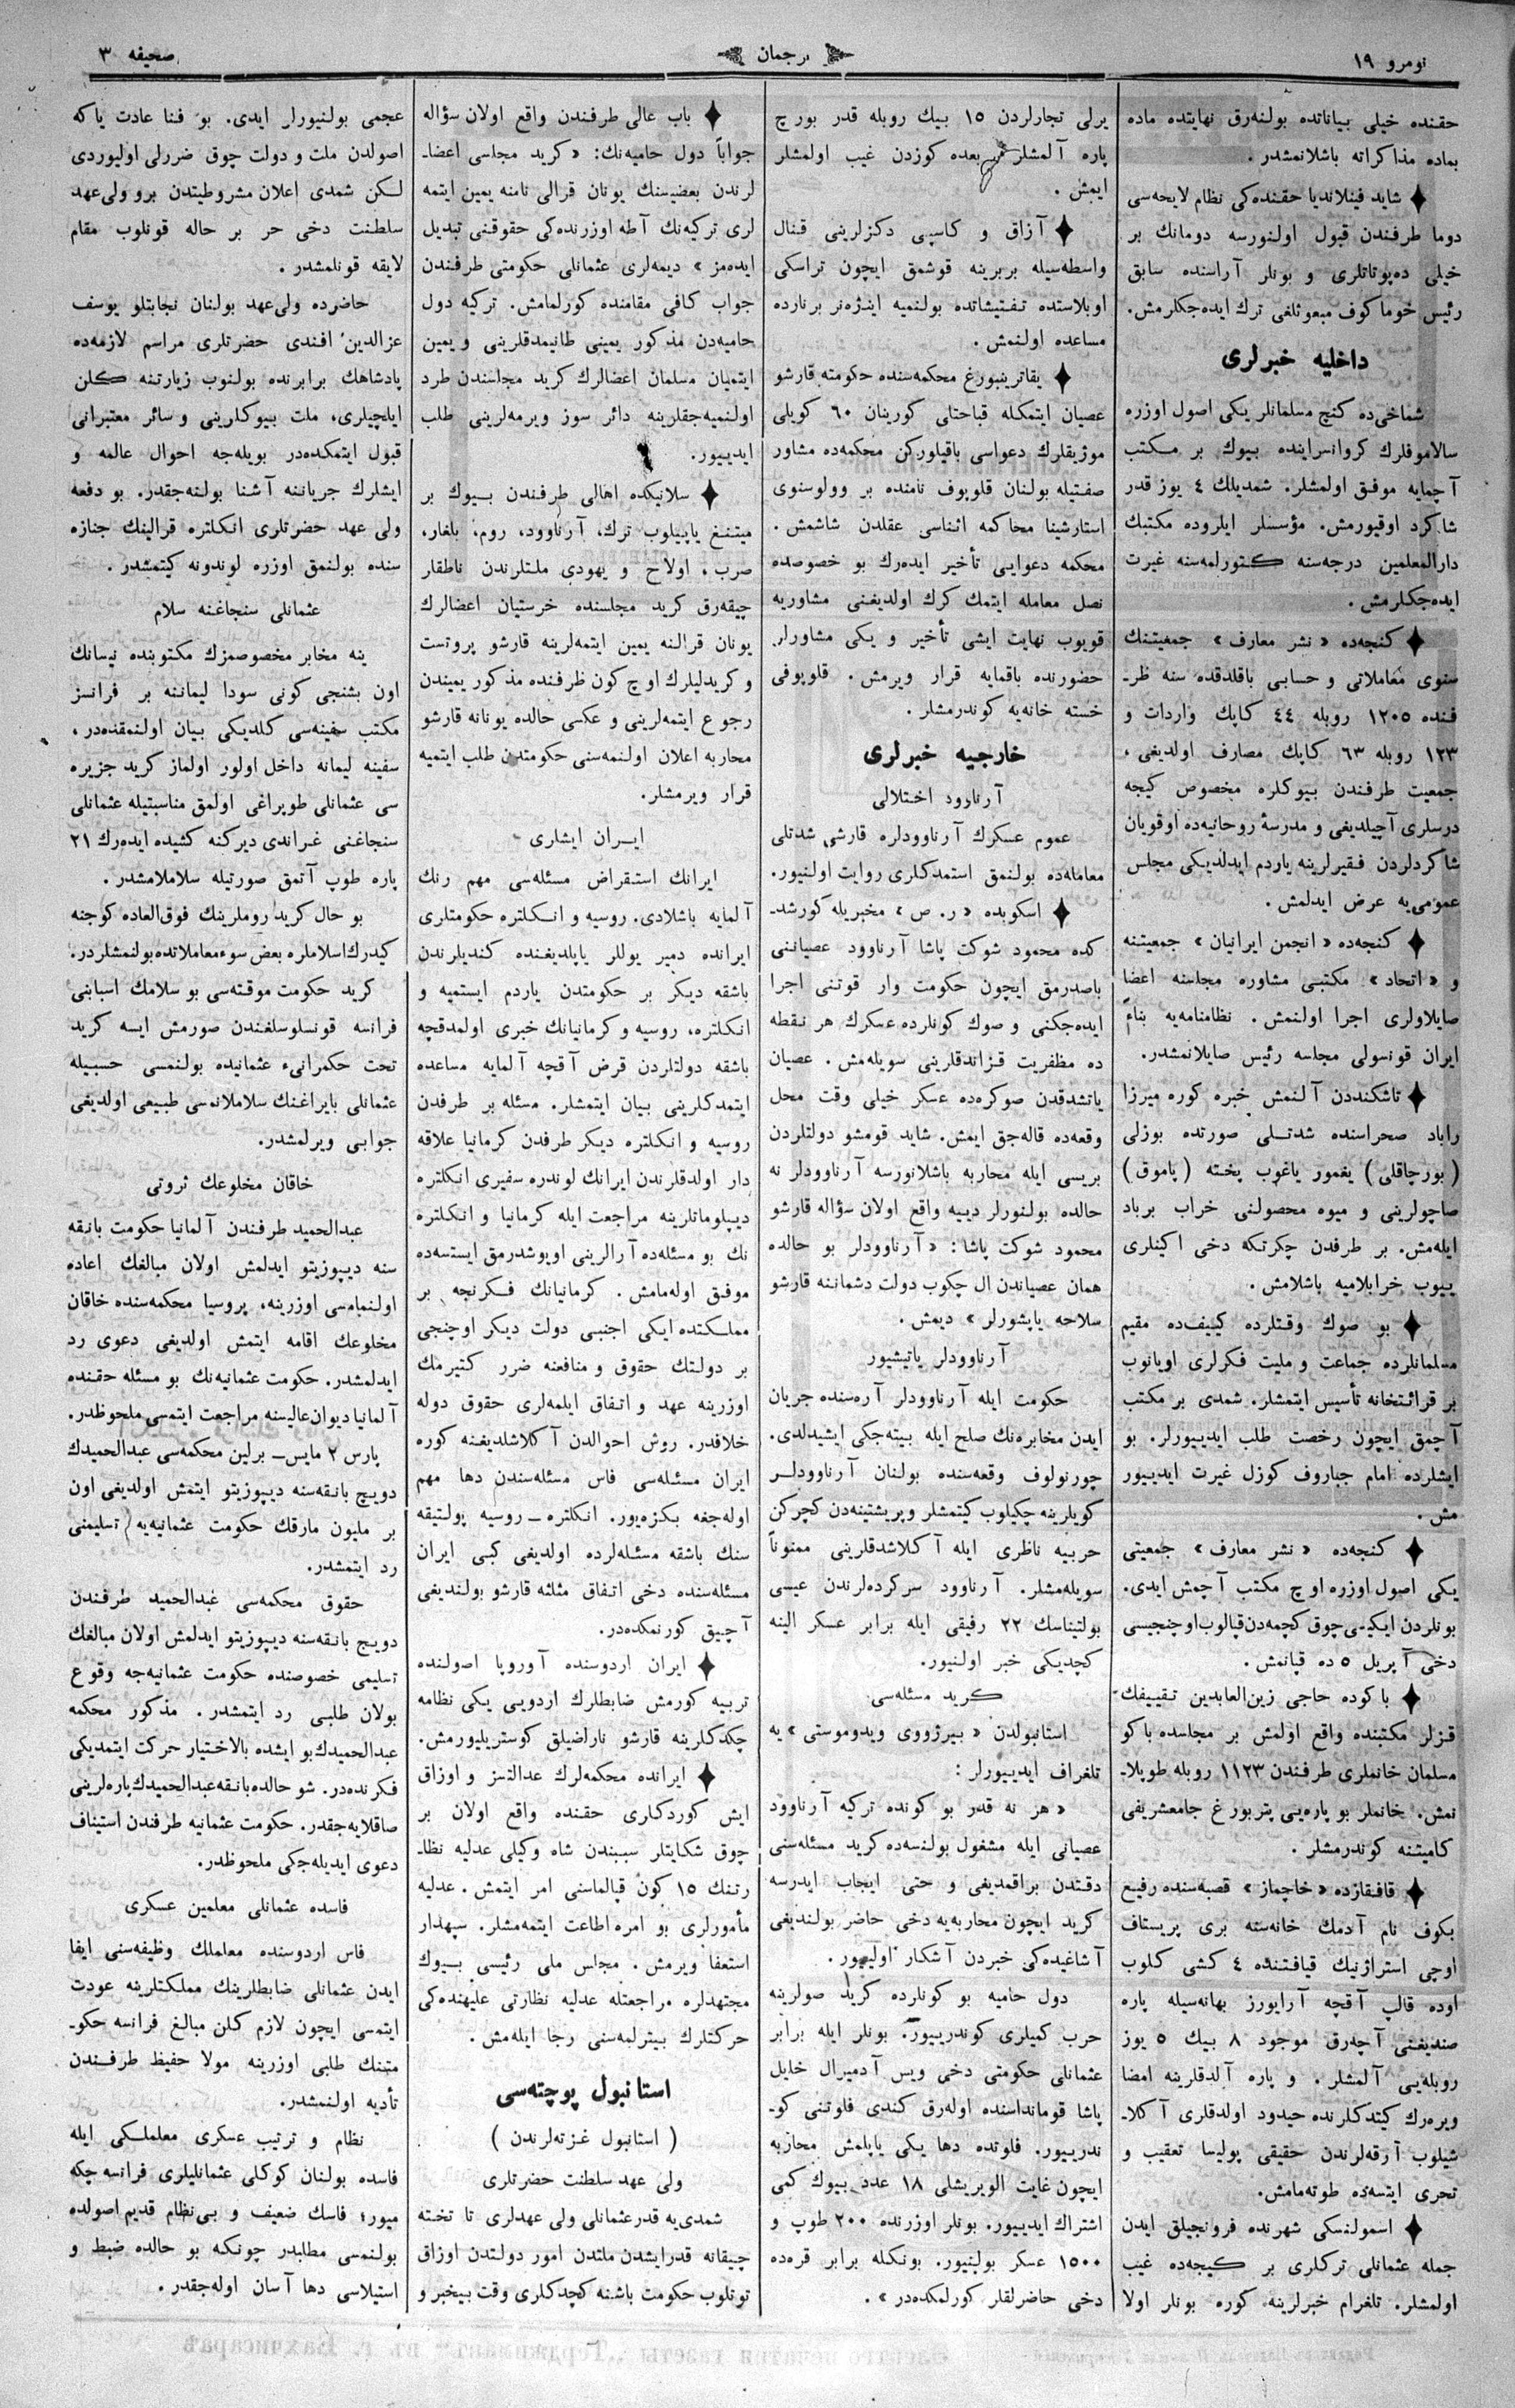 نومرو ١٩
ترجمان
صحیفه ٣
حقنده خیلی بیاناتده بولنه‌رق نهایتده ماده
بماده مذاكراته باشلانمشدر.
شاید فینلاندیا حقنده‌كی نظام لایحه‌سی
دوما طرفندن قبول اولنورسه دومانك بر
خیلی ده‌پوتاتلری و بونلر آراسنده سابق
رئیس خوماكوف مبعوثلغی ترك ایده‌جكلرمش.
داخلیه خبرلری
شماخی‌ده كنج مسلمانلر یكی اصول اوزره
سالاموفلرك كروانسراینده بیوك بر مكتب
آچمایه موفق اولمشلر. شمدیلك ٤ یوز قدر
شاكرد اوقیورمش. مؤسسلر ایلروده مكتبك
دارالمعلمین درجه‌سنه كتورلمه‌سنه غیرت
ایده‌جكلرمش.
كنجه‌ده « نشر معارف » جمعیتنك
سنوی معاملاتی و حسابی باقلدقده سنه ظر-
فنده ١٢٠٥ روبله ٤٤ كاپك واردات و
١٢٣ روبله ٦٣ كاپك مصارف اولدیغی،
جمعیت طرفندن بیوكلره مخصوص كیجه
درسلری آچیلدیغی و مدرسهٔ روحانیه‌ده اوقویان
شاكردلردن فقیرلرینه یاردم ایدلدیكی مجلس
عمومی‌یه عرض ایدلمش.
كنجه‌ده « انجمن ایرانیان » جمعیتنه
و « اتحاد » مكتبی مشاوره مجلسنه اعضا
صایلاولری اجرا اولنمش. نظامنامه‌یه بناءً
ایران قونسولی مجلسه رئیس صایلانمشدر.
تاشكنددن آلنمش خبره كوره میرزا
راباد صحراسنده شدتلی صورتده بوزلی
( بورچاقلی ) یغمور یاغوب پخته ( پاموق )
صاچولرینی و میوه محصولنی خراب برباد
ایله‌مش. بر طرفدن چكرتكه دخی اكینلری
ییوب خرابلامیه باشلامش.
بو صوك وقتلرده كییف‌ده مقیم
مسلمانلرده جماعت و ملیت فكرلری اویانوب
بر قرائتخانه تأسیس ایتمشلر. شمدی بر مكتب
آچمق ایچون رخصت طلب ایدییورلر. بو
ایشلرده امام جباروف كوزل غیرت ایدییور
مش.
كنجه‌ده « نشر معارف » جمعیتی
یكی اصول اوزره اوچ مكتب آچمش ایدی.
بونلردن ایكیسی چوق كچمه‌دن قپالوب اوچنجیسی
دخی آپریل ٥ ده قپانمش.
باكوده حاجی زین‌العابدین تقییفك
قزلر مكتبنده واقع اولمش بر مجلسده باكو
مسلمان خانملری طرفندن ١١٢٣ روبله طوپلا-
نمش. خانملر بو پاره‌یی پتربورغ جامعشریفی
كامیتنه كوندرمشلر.
قافقازده « خاچماز » قصبه‌سنده رفیع
بكوف نام آدمك خانه‌سنه بری پریستاف
اوچی استراژنیك قیافتنده ٤ كشی كلوب
اوده قالپ آقچه آرایورز بهانه‌سیله پاره
صندیغنی آچه‌رق موجود ٨ بیك ٥ یوز
روبله‌یی آلمشلر. و پاره آلدقلرینه امضا
ویره‌رك كیتدكلرنده حیدود اولدقلری آكلا-
شیلوب آرقه‌لرندن حقیقی پولیسا تعقیب و
تحری ایتسه‌ده طوته‌مامش.
اسمولنسكی شهرنده فرونجیلق ایدن
جمله عثمانلی تركلری بر كیجه‌ده غیب
اولمشلر. تلغرام خبرلرینه كوره بونلر اولا
یرلی تجارلردن ١٥ بیك روبله قدر بورچ
پاره آلمشلر بعده كوزدن غیب اولمشلر
ایمش.
آزاق و كاسپی دكزلرینی قنال
واسطه‌سیله بربرینه قوشمق ایچون تراسكی
اوبلاستده تفتیشاتده بولنمیه اینژه‌نر برنارده
مساعده اولنمش.
یقاترینبورغ محكمه‌سنده حكومته قارشو
عصیان ایتمكله قباحتلی كورینان ٦٠ كویلی
موژیقلرك دعواسی باقیلوركن محكمه‌ده مشاور
صفتیله بولنان قلوپوف نامنده بر وولوسنوی
استارشینا محاكمه اثناسی عقلدن شاشمش.
محكمه دعوایی تأخیر ایده‌رك بو خصوصده
نصل معامله ایتمك كرك اولدیغنی مشاوریه
قویوب نهایت ایشی تأخیر و یكی مشاورلر
حضورنده باقمایه قرار ویرمش. قلوپوفی
خسته خانه‌یه كوندرمشلر.
خارجیه خبرلری
آرناوود اختلالی
عموم عسكرك آرناوودلره قارشی شدتلی
معامله‌ده بولنمق استمدكلری روایت اولنیور.
اسكوبده « ر. ص » مخبریله كورشد-
كده محمود شوكت پاشا آرناوود عصیاننی
باصدرمق ایچون حكومت وار قوتنی اجرا
ایده‌جكنی و صوك كونلرده عسكرك هر نقطه
ده مظفریت قزاندقلرینی سویله‌مش. عصیان
یاتشدقدن صوكره‌ده عسكر خیلی وقت محل
وقعه‌ده قاله‌جق ایمش. شاید قومشو دولتلردن
بریسی ایله محاربه باشلانورسه آرناوودلر نه
حالده بولنورلر دییه واقع اولان سؤاله قارشو
محمود شوكت پاشا: « آرناوودلر بو حالده
همان عصیاندن ال چكوب دولت دشماننه قارشو
سلاحه یاپشورلر » دیمش.
آرناوودلر یاتیشیور
حكومت ایله آرناوودلر آره‌سنده جریان
ایدن مخابره‌نك صلح ایله بیته‌جكی ایشیدلدی.
چورنولوف وقعه‌سنده بولنان آرناوودلر
كویلرینه چكیلوب كیتمشلر و پریشتینه‌دن كچركن
حربیه ناظری ایله آكلاشدقلرینی ممنوناً
سویله‌مشلر. آرناوود سركرده‌لرندن عیسی
بولتیناسك ٢٢ رفیقی ایله برابر عسكر الینه
كچدیكی خبر اولنیور.
كرید مسئله‌سی
استانبولدن « بیرژووی ویدوموستی » یه
تلغراف ایدییورلر:
« هر نه قدر بو كونده تركیه آرناوود
عصیانی ایله مشغول بولنسه‌ده كرید مسئله‌سنی
دقتدن براقمدیغی و حتی ایجاب ایدرسه
كرید ایچون محاربه‌یه دخی حاضر بولندیغی
آشاغیده‌كی خبردن آشكار اولیور.
دول حامیه بو كونلرده كرید صولرینه
حرب كمیلری كوندرییور. بونلر ایله برابر
عثمانلی حكومتی دخی ویس آدمیرال خلیل
پاشا قوماندا‌سنده اوله‌رق كندی فلوتنی كو-
ندرییور. فلوتده دها یكی یاپلمش محاربه
ایچون غایت الویریشلی ١٨ عدد بیوك كمی
اشتراك ایدییور. بونلر اوزرنده ٢٠٠ طوپ و
١٥٠٠ عسكر بولنیور. بونكله برابر قره‌ده
دخی حاضرلقلر كورلمكده‌در ».
باب عالی طرفندن واقع اولان سؤاله
جواباً دول حامیه‌نك: « كرید مجلسی اعضا-
لرندن بعضیسنك یونان قرالی نامنه یمین ایتمه
لری تركیه‌نك آطه اوزرنده‌كی حقوقنی تبدیل
ایده‌مز » دیمه‌لری عثمانلی حكومتی طرفندن
جواب كافی مقامنده كورلمامش. تركیه دول
حامیه‌دن مذكور یمینی طانیمدقلرینی و یمین
ایتمیان مسلمان اعضالرك كرید مجلسندن طرد
اولنمیه‌جقلرینه دائر سوز ویرمه‌لرینی طلب
ایدییور.
سلانیكده اهالی طرفندن بیوك بر
میتنغ یاپیلوب ترك، آرناوود، روم، بلغار،
صرب، اولاح و یهودی ملتلرندن ناطقلر
چیقه‌رق كرید مجلسنده خرستیان اعضالرك
یونان قرالنه یمین ایتمه‌لرینه قارشو پروتست
و كریدلیلرك اوچ كون ظرفنده مذكور یمیندن
رجوع ایتمه‌لرینی و عكسی حالده یونانه قارشو
محاربه اعلان اولنمه‌سنی حكومتدن طلب ایتمیه
قرار ویرمشلر.
ایران ایشلری
ایرانك استقراض مسئله‌سی مهم رنك
آلمایه باشلادی. روسیه و انكلتره حكومتلری
ایرانده دمیر یوللر یاپلدیغنده كندیلرندن
باشقه دیكر بر حكومتدن یاردم ایستمیه و
انكلتره، روسیه و كرمانیانك خبری اولمدقچه
باشقه دولتلردن قرض آقچه آلمایه مساعده
ایتمدكلرینی بیان ایتمشلر. مسئله بر طرفدن
روسیه و انكلتره دیكر طرفدن كرمانیا علاقه
دار اولدقلرندن ایرانك لوندره سفیری انكلتره
دیپلوماتلرینه مراجعت ایله كرمانیا و انكلتره
نك بو مسئله‌ده آرالرینی اویوشدرمق ایستسه‌ده
موفق اوله‌مامش. كرمانیانك فكرنجه بر
مملكتده ایكی اجنبی دولت دیكر اوچنجی
بر دولتك حقوق و منافعنه ضرر كتیرمك
اوزرینه عهد و اتفاق ایلمه‌لری حقوق دوله
خلافدر. روش احوالدن آكلاشلدیغنه كوره
ایران مسئله‌سی فاس مسئله‌سندن دها مهم
اوله‌جغه بكزه‌یور. انكلتره - روسیه پولتیقه
سنك باشقه مسئله‌لرده اولدیغی كبی ایران
مسئله‌سنده دخی اتفاق مثلثه قارشو بولندیغی
آچیق كورنمكده‌در.
ایران اردوسنده آوروپا اصولنده
تربیه كورمش ضابطلرك اردویی یكی نظامه
چكدكلرینه قارشو ناراضیلق كوستریلیورمش.
ایرانده محكمه‌لرك عدالتسز و اوزاق
ایش كوردكلری حقنده واقع اولان بر
چوق شكایتلر سببندن شاه وكیلی عدلیه نظا-
رتنك ١٥ كون قپالماسنی امر ایتمش. عدلیه
مأمورلری بو امره اطاعت ایتمه‌مشلر. سپهدار
استعفا ویرمش. مجلس ملی رئیسی بیوك
مجتهدلره مراجعتله عدلیه نظارتی علیهنده‌كی
حركتلرك بیترلمه‌سنی رجا ایله‌مش.
استانبول پوچته‌سی
( استانبول غزته‌لرندن )
ولی عهد سلطنت حضرتلری
شمدی‌یه قدر عثمانلی ولی عهدلری تا تخته
چیقانه قدر ایشدن ملتدن امور دولتدن اوزاق
توتلوب حكومت باشنه كچدكلری وقت بیخبر و
عجمی بولنیورلر ایدی. بو فنا عادت یاكه
اصولدن ملت و دولت چوق ضررلی اولیوردی
لكن شمدی اعلان مشروطیتدن برو ولی‌عهد
سلطنت دخی حر بر حاله قونلوب مقام
لایقه قونلمشدر.
حاضرده ولی‌عهد بولنان نجابتلو یوسف
عزالدین افندی حضرتلری مراسم لازمه‌ده
پادشاهك برابرنده بولنوب زیارتنه كلن
ایلچیلری، ملت بیوكلرینی و سائر معتبرانی
قبول ایتمكده‌در بویله‌جه احوال عالمه و
ایشلرك جریاننه آشنا بولنه‌جقدر. بو دفعه
ولی عهد حضرتلری انكلتره قرالینك جنازه
سنده بولنمق اوزره لوندونه كیتمشدر.
عثمانلی سنجاغنه سلام
ینه مخابر مخصوصمزك مكتوبنده نیسانك
اون بشنجی كونی سودا لیماننه بر فرانسز
مكتب سفینه‌سی كلدیكی بیان اولنمقده‌در،
سفینه لیمانه داخل اولور اولماز كرید جزیره
سی عثمانلی طوپراغی اولمق مناسبتیله عثمانلی
سنجاغنی غراندی دیركنه كشیده ایده‌رك ٢١
پاره طوپ آتمق صورتیله سلاملامشدر.
بو حال كرید روملرینك فوق‌العاده كوجنه
كیدرك اسلاملره بعض سوء معاملاتده بولنمشلردر.
كرید حكومت موقته‌سی بو سلامك اسبابنی
فرانسه قونسلوسلغندن صورمش ایسه كرید
تحت حكمرانیء عثمانیده بولنمسی حسبیله
عثمانلی بایراغنك سلاملانمسی طبیعی اولدیغی
جوابی ویرلمشدر.
خاقان مخلوعك ثروتی
عبدالحمید طرفندن آلمانیا حكومت بانقه
سنه دیپوزیتو ایدلمش اولان مبالغك اعاده
اولنمامسی اوزرینه، پروسیا محكمه‌سنده خاقان
مخلوعك اقامه ایتمش اولدیغی دعوی رد
ایدلمشدر. حكومت عثمانیه‌نك بو مسئله حقنده
آلمانیا دیوان عالیسنه مراجعت ایتمسی ملحوظدر.
پارس ٢ مایس - برلین محكمه‌سی عبدالحمیدك
دویچ بانقه‌سنه دیپوزیتو ایتمش اولدیغی اون
بر ملیون مارقك حكومت عثمانیه‌یه تسلیمنی
رد ایتمشدر.
حقوق محكمه‌سی عبدالحمید طرفندن
دویچ بانقه‌سنه دیپوزیتو ایدلمش اولان مبالغك
تسلیمی خصوصنده حكومت عثمانیه‌جه وقوع
بولان طلبی رد ایتمشدر. مذكور محكمه
عبدالحمیدك بو ایشده بالاختیار حركت ایتمدیكی
فكرنده‌در. شو حالده بانقه عبدالحمیدك پاره‌لرینی
صاقلایه‌جقدر. حكومت عثمانیه طرفندن استیناف
دعوی ایدیله‌جكی ملحوظدر.
فاسده عثمانلی معلمین عسكری
فاس اردوسنده معلملك وظیفه‌سنی ایفا
ایدن عثمانلی ضابطلرینك مملكتلرینه عودت
ایتمسی ایچون لازم كلن مبالغ فرانسه حكو-
متنك طلبی اوزرینه مولا حفیظ طرفندن
تأدیه اولنمشدر.
نظام و ترتیب عسكری معلملكی ایله
فاسده بولنان كوكلی عثمانلیلری فرانسه چكه
میور؛ فاسك ضعیف و بی‌نظام قدیم اصولده
بولنمسی مطلبدر چونكه بو حالده ضبط و
استیلاسی دها آسان اوله‌جقدر.